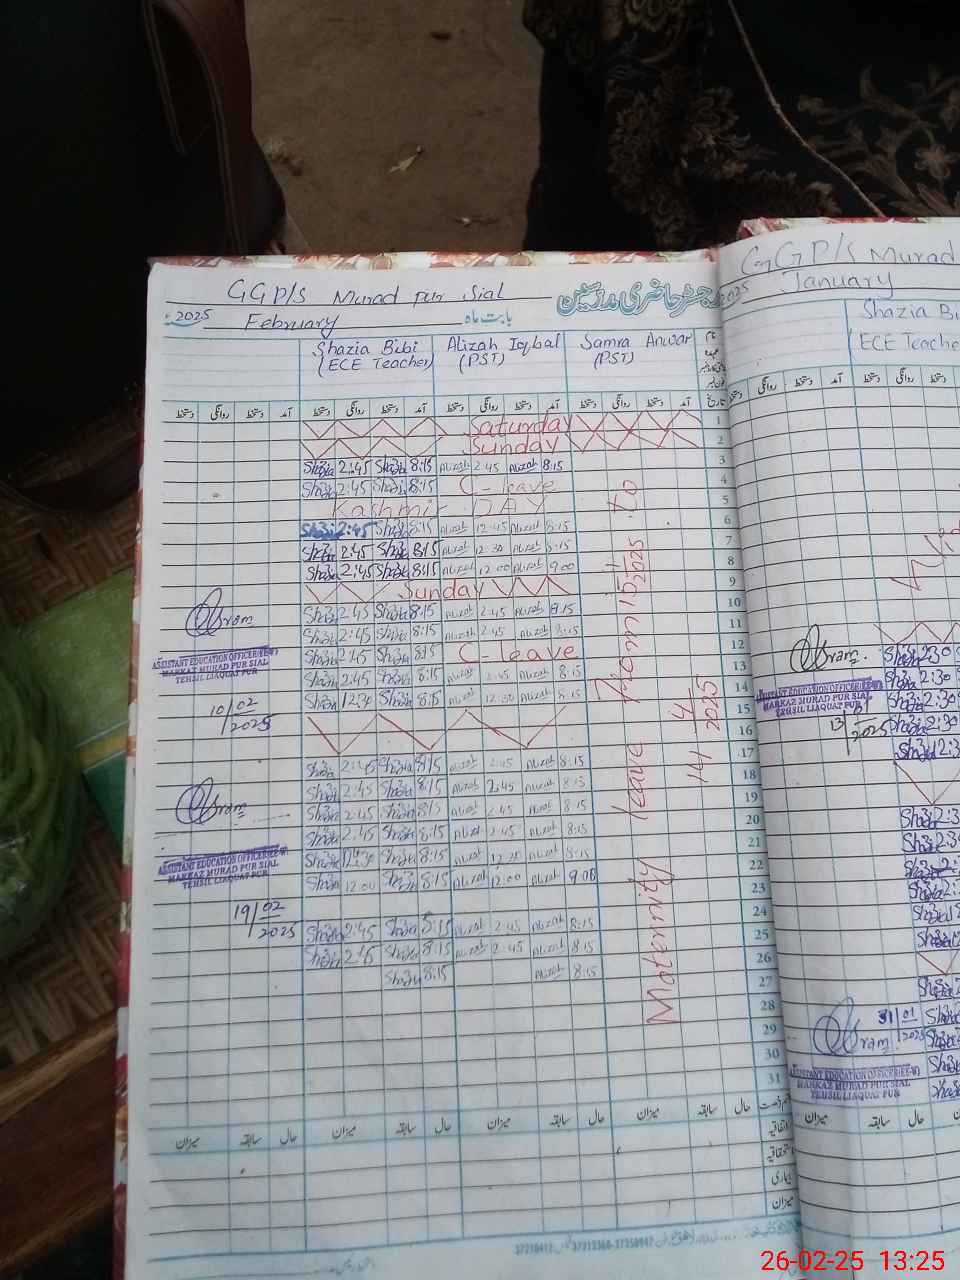 GGP/S Murad pur Sial رجسٹر حاضری مدرسین
2025 February بابت ماہ
Shazia Bibi (ECE Teacher) Alizah Iqbal (PST) Samra Anwar (PST)
دستخط روانگی دستخط آمد دستخط روانگی دستخط آمد دستخط روانگی دستخط آمد دستخط روانگی دستخط آمد تاریخ
Saturday 1
Sunday 2
Shazia 2:45 Shazia 8:15 Alizah 2:45 Alizah 8:15 3
Shazia 2:45 Shazia 8:15 C-leave 4
Kashmir DAY 5
Shazia 2:45 Shazia 8:15 Alizah 12:45 Alizah 8:15 6
Shazia 2:45 Shazia 8:15 Alizah 12:30 Alizah 8:15 7
Shazia 2:45 Shazia 8:15 Alizah 12:00 Alizah 9:00 8
Sunday 9
Shazia 2:45 Shazia 8:15 Alizah 2:45 Alizah 8:15 10
Shazia 2:45 Shazia 8:15 Alizah 2:45 Alizah 8:15 11
Shazia 2:45 Shazia 8:15 C-leave 12
Shazia 2:45 Shazia 8:15 Alizah 2:45 Alizah 8:15 13
Shazia 12:30 Shazia 8:15 Alizah 12:30 Alizah 8:15 14
15
16
Shazia 2:45 Shazia 8:15 Alizah 2:45 Alizah 8:15 17
Shazia 2:45 Shazia 8:15 Alizah 2:45 Alizah 8:15 18
Shazia 2:45 Shazia 8:15 Alizah 2:45 Alizah 8:15 19
Shazia 2:45 Shazia 8:15 Alizah 2:45 Alizah 8:15 20
Shazia 12:30 Shazia 8:15 Alizah 12:30 Alizah 8:15 21
Shazia 12:00 Shazia 8:15 Alizah 12:00 Alizah 9:00 22
23
Shazia 2:45 Shazia 8:15 Alizah 2:45 Alizah 8:15 24
Shazia 2:45 Shazia 8:15 Alizah 2:45 Alizah 8:15 25
Shazia 8:15 Alizah 8:15 26
27
28
29
30
31
Maternity leave from 15 2025 to
14/4/2025
ASSISTANT EDUCATION OFFICER(EE-W)
MARKAZ MURAD PUR SIAL
TEHSIL LIAQUAT PUR
10/02/2025
ASSISTANT EDUCATION OFFICER(EE-W)
MARKAZ MURAD PUR SIAL
TEHSIL LIAQUAT PUR
19/02/2025
میزان سابقہ حال میزان سابقہ حال میزان سابقہ حال میزان سابقہ حال
اتفاقیہ
بیماری
میزان
GGP/S Murad
2025 January
Shazia Bi
(ECE Teache
ASSISTANT EDUCATION OFFICER(EE-W)
MARKAZ MURAD PUR SIAL
TEHSIL LIAQUAT PUR
31/01/2025
ASSISTANT EDUCATION OFFICER(EE-W)
MARKAZ MURAD PUR SIAL
TEHSIL LIAQUAT PUR
میزان سابقہ حال
26-02-25 13:25